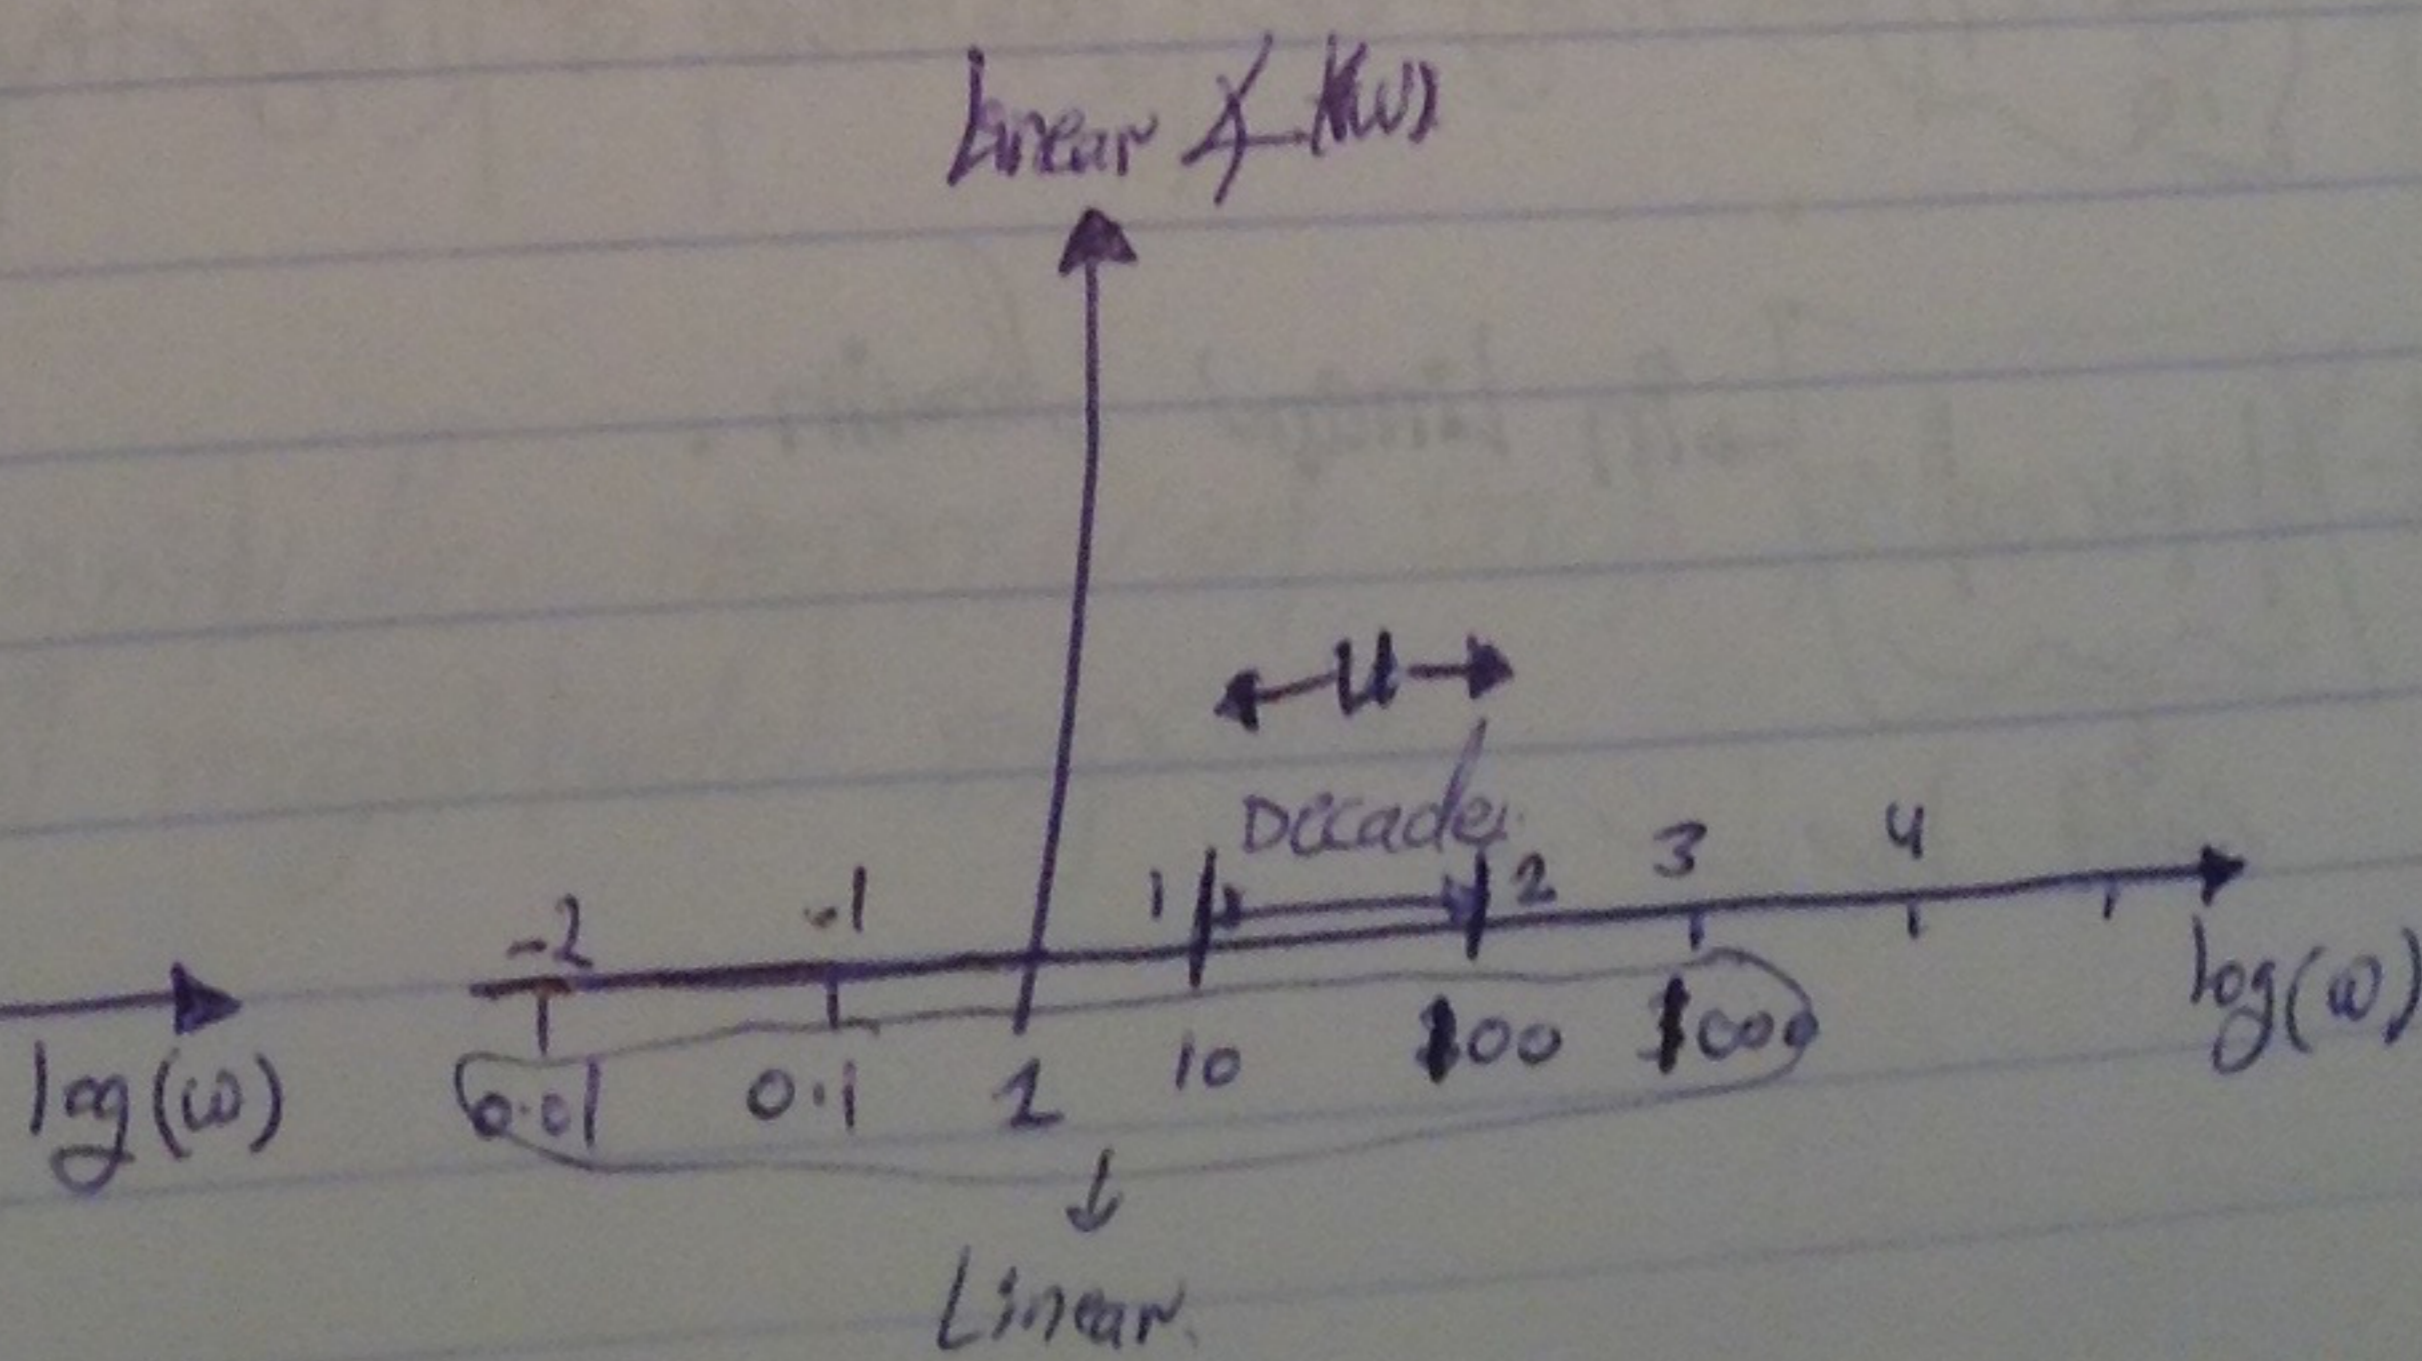 Linear ∡ H(ω)
u
Decade
-2 -1 1 2 3 4
log(ω)
0.01 0.1 1 10 100 1000
log(ω)
Linear.